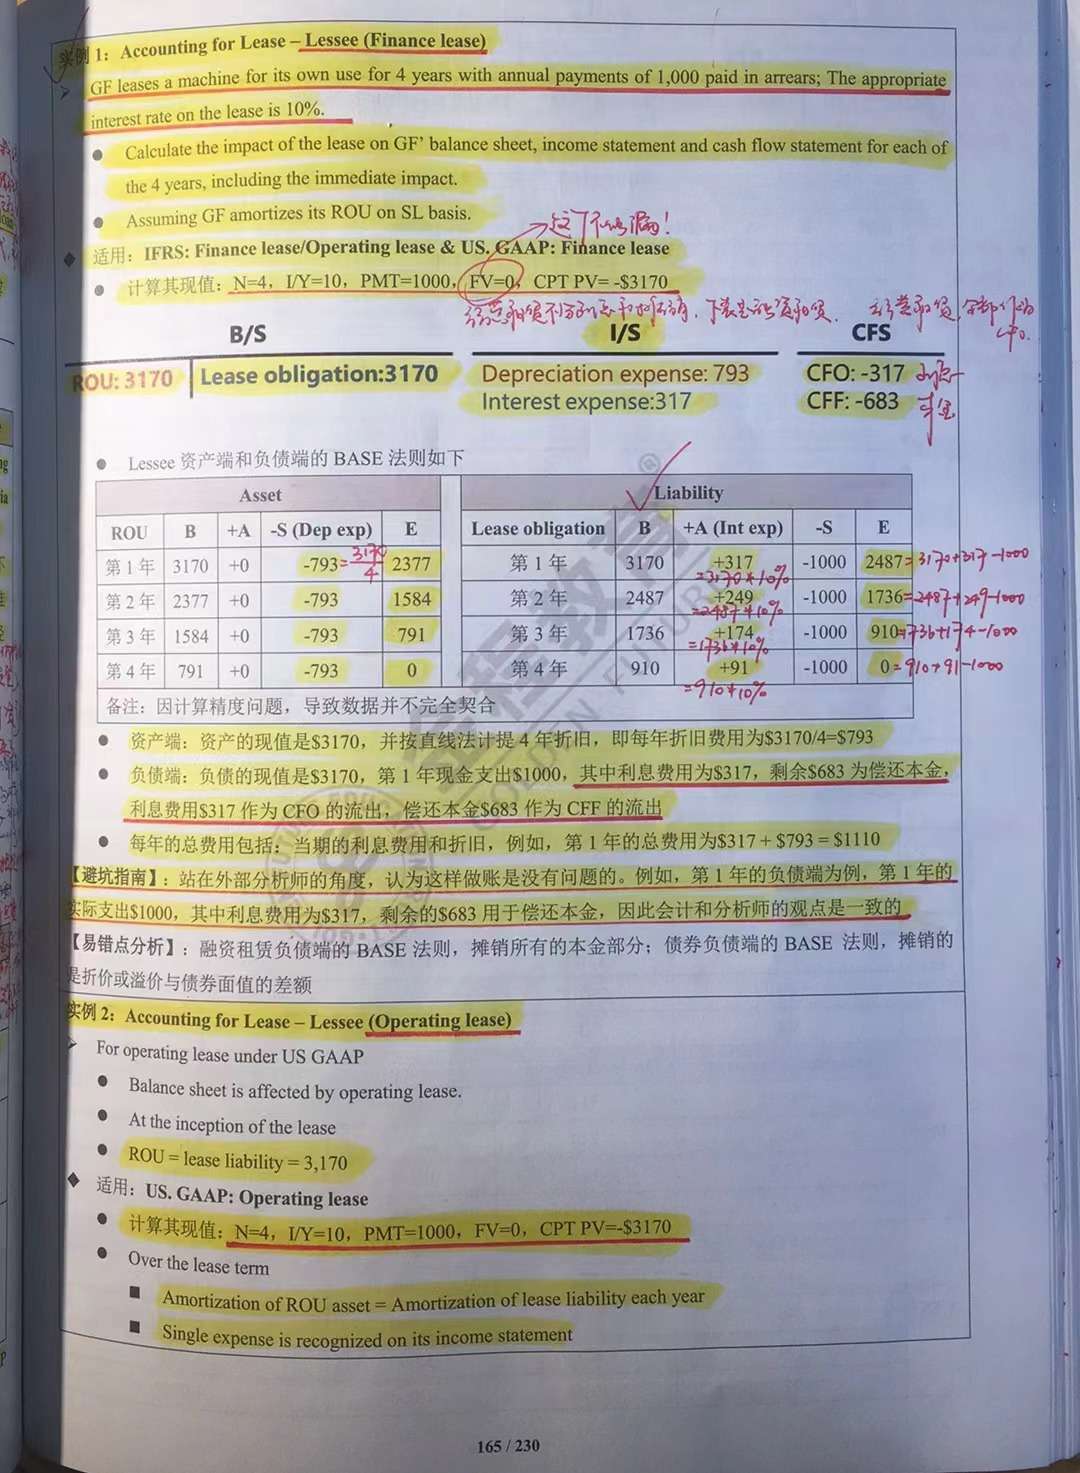 实例 1：Accounting for Lease – Lessee (Finance lease)
GF leases a machine for its own use for 4 years with annual payments of 1,000 paid in arrears; The appropriate
interest rate on the lease is 10%.
● Calculate the impact of the lease on GF' balance sheet, income statement and cash flow statement for each of
the 4 years, including the immediate impact.
● Assuming GF amortizes its ROU on SL basis.
◆ 适用：IFRS: Finance lease/Operating lease & US. GAAP: Finance lease
● 计算其现值：N=4，I/Y=10，PMT=1000，FV=0，CPT PV= -$3170
B/S I/S CFS
ROU: 3170 Lease obligation:3170 Depreciation expense: 793 CFO: -317
Interest expense:317 CFF: -683
● Lessee 资产端和负债端的 BASE 法则如下
Asset Liability
ROU B +A -S (Dep exp) E Lease obligation B +A (Int exp) -S E
第 1 年 3170 +0 -793 = 3170/4 2377 第 1 年 3170 +317 -1000 2487 = 3170+317-1000
=3170*10%
第 2 年 2377 +0 -793 1584 第 2 年 2487 +249 -1000 1736 =2487+249-1000
=2487*10%
第 3 年 1584 +0 -793 791 第 3 年 1736 +174 -1000 910 =1736+174-1000
=1736*10%
第 4 年 791 +0 -793 0 第 4 年 910 +91 -1000 0 =910+91-1000
=910*10%
备注：因计算精度问题，导致数据并不完全契合
● 资产端：资产的现值是$3170，并按直线法计提 4 年折旧，即每年折旧费用为$3170/4=$793
● 负债端：负债的现值是$3170，第 1 年现金支出$1000，其中利息费用为$317，剩余$683 为偿还本金，
利息费用$317 作为 CFO 的流出，偿还本金$683 作为 CFF 的流出
● 每年的总费用包括：当期的利息费用和折旧，例如，第 1 年的总费用为$317 + $793 = $1110
【避坑指南】：站在外部分析师的角度，认为这样做账是没有问题的。例如，第 1 年的负债端为例，第 1 年的
实际支出$1000，其中利息费用为$317，剩余的$683 用于偿还本金，因此会计和分析师的观点是一致的
【易错点分析】：融资租赁负债端的 BASE 法则，摊销所有的本金部分；债券负债端的 BASE 法则，摊销的
是折价或溢价与债券面值的差额
实例 2：Accounting for Lease – Lessee (Operating lease)
For operating lease under US GAAP
● Balance sheet is affected by operating lease.
● At the inception of the lease
● ROU = lease liability = 3,170
◆ 适用：US. GAAP: Operating lease
● 计算其现值：N=4，I/Y=10，PMT=1000，FV=0，CPT PV=-$3170
● Over the lease term
■ Amortization of ROU asset = Amortization of lease liability each year
■ Single expense is recognized on its income statement
165 / 230